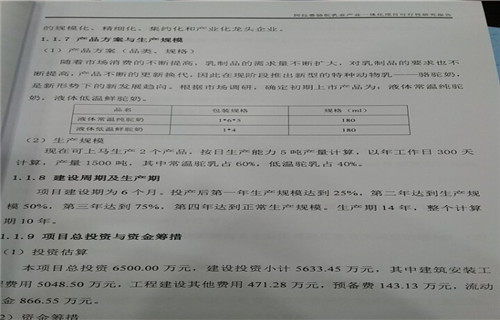 阿拉善骆驼乳业产业一体化项目可行性研究报告
的规模化、精细化、集约化和产业化龙头企业。
1.1.7 产品方案与生产规模
（1）产品方案（品类、规格）
随着市场消费的不断提高，乳制品的需求量不断扩大，对乳制品的要求也不
断提高，产品不断的更新换代，因此在现阶段推出新型的特种动物乳——骆驼奶，
是新形势下的新发展趋向。根据市场调研，确定初期上市产品为，液体常温纯驼
奶，液体低温鲜驼奶。
品名 包装规格 规格（ml）
液体常温纯驼奶 1*6*5 180
液体低温鲜驼奶 1*4 180
（2）生产规模
现在可上马生产 2 个产品，按日生产能力 5 吨产量计算，以年工作日 300 天
计算，产量 1500 吨，其中常温驼乳占 60%，低温驼乳占 40%。
1.1.8 建设周期及生产期
项目建设期为 6 个月。投产后第一年生产规模达到 25%，第二年达到生产规
模 50%，第三年达到 75%，第四年达到正常生产规模。生产期 14 年，整个计算
期 10 年。
1.1.9 项目总投资与资金筹措
（1）投资估算
本项目总投资 6500.00 万元，建设投资小计 5633.45 万元，其中建筑安装工
程费用 5048.50 万元，工程建设其他费用 471.28 万元，预备费 143.13 万元，流动
金 866.55 万元。
2）资金筹措